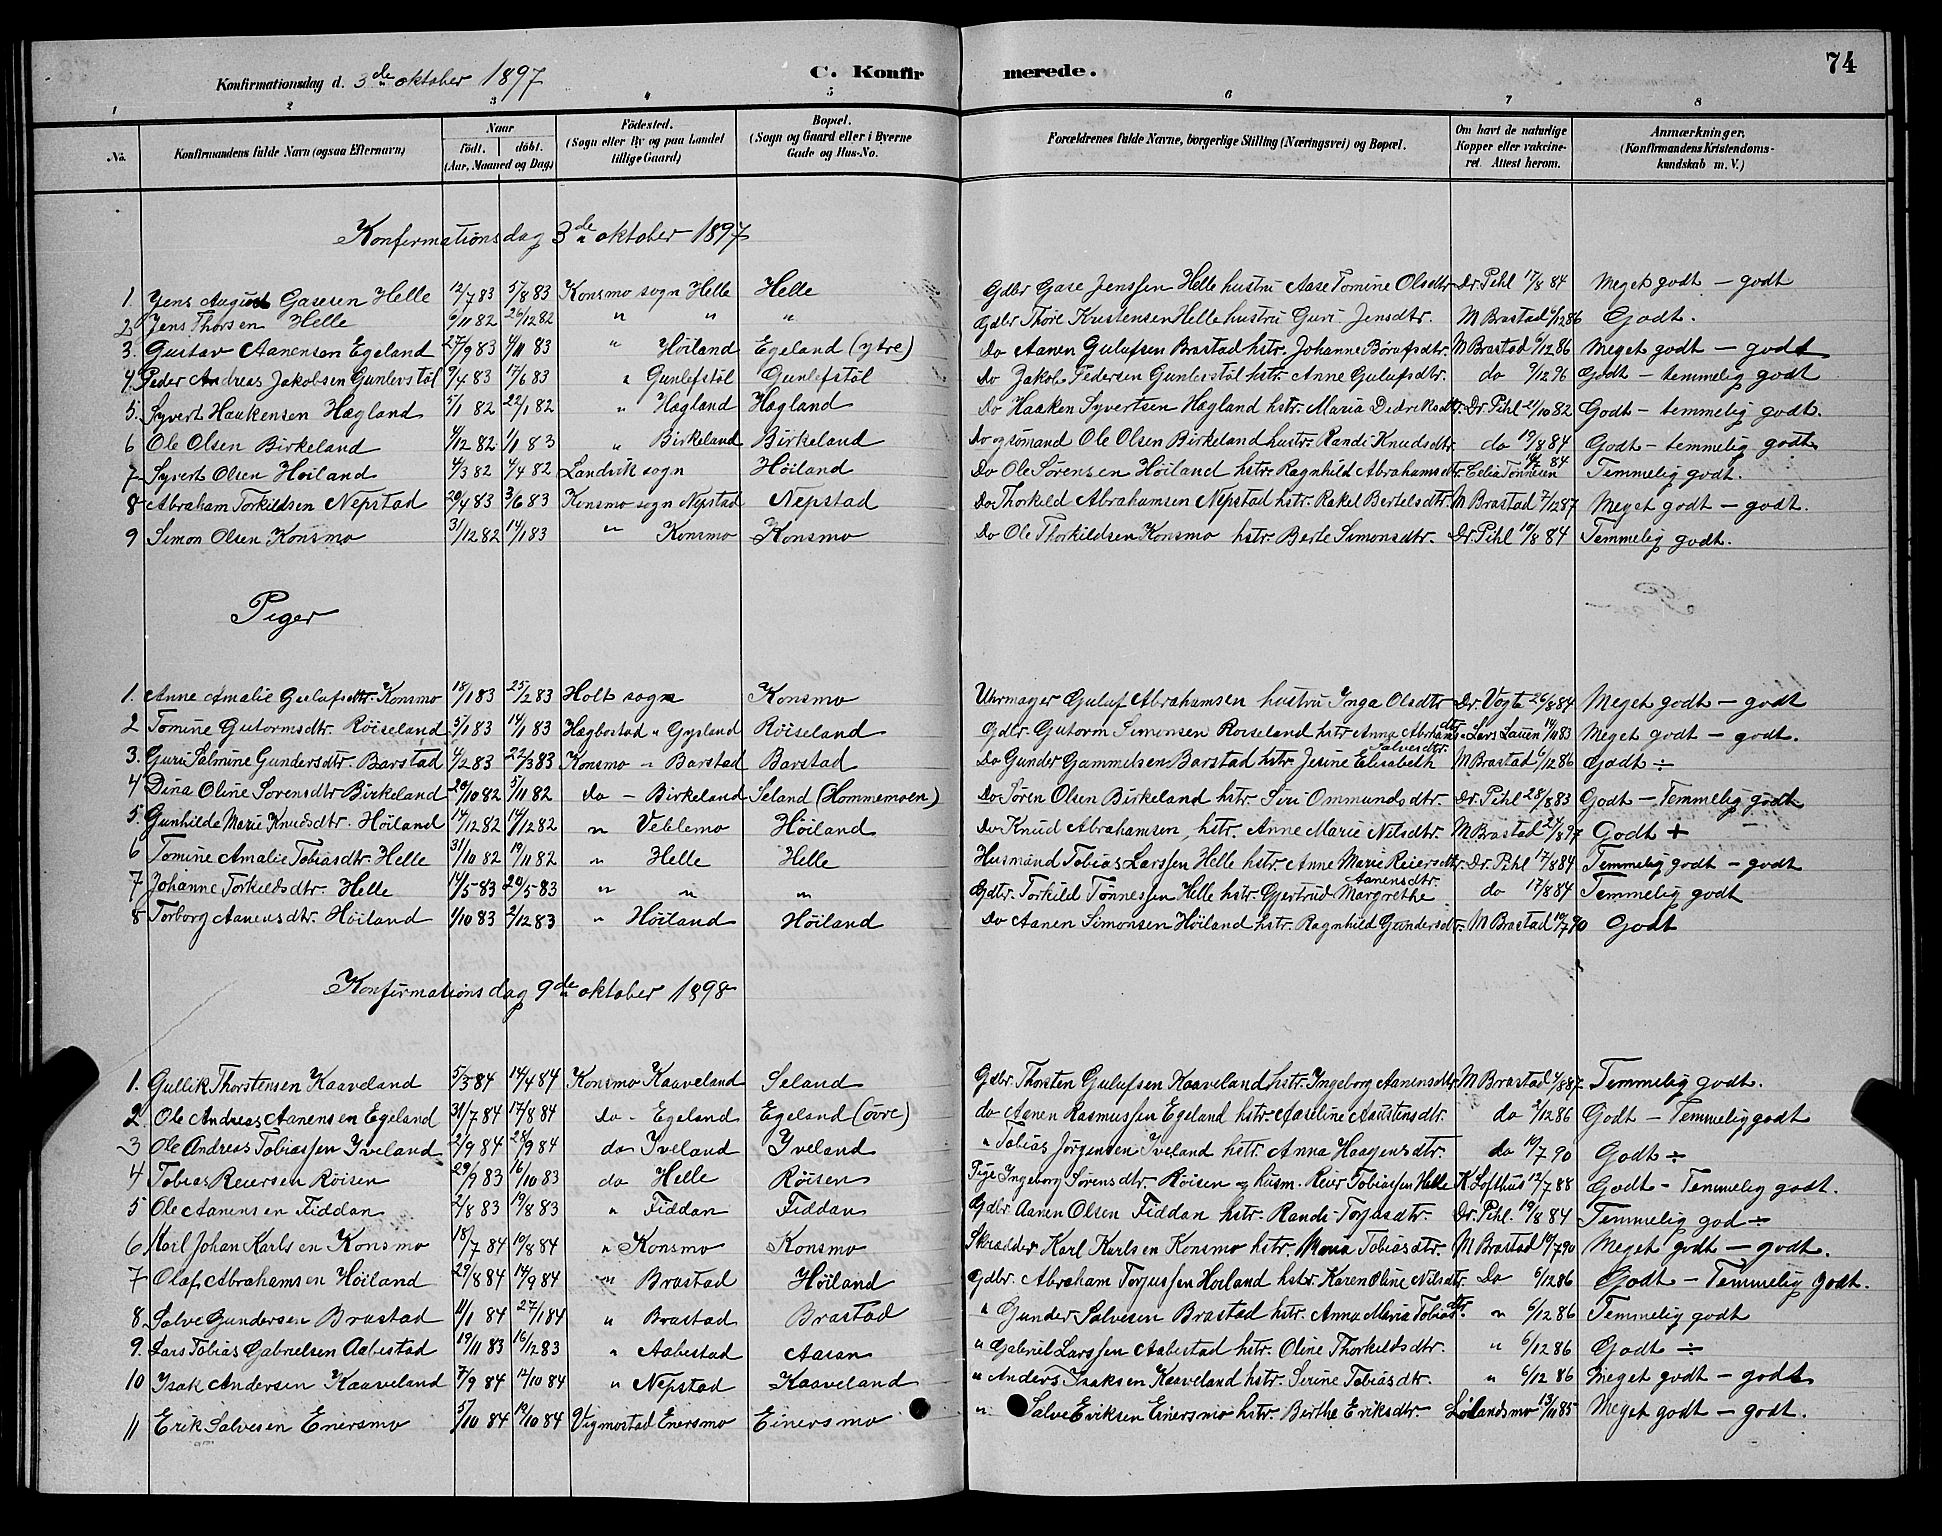 Konfirmationsdag d. 3de oktober 1897 C. Konfirmerede. 74
1 2 3 4 5 6 7 8
No. Konfirmandens fulde Navn (ogsaa Efternavn) Naar födt. döbt. (Aar, Maaned og Dag) Födested. (Sogn eller By og paa Landet tillige Gaard) Bopæl. (Sogn og Gaard eller i Byerne Gade og Hus-No. Forældrenes fulde Navne, borgerlige Stilling (Næringsvei) og Bopæl. Om havt de naturlige Kopper eller vakcineret. Attest herom. Anmærkninger. (Konfirmandens Kristendomskundskab m. V.)
Konfirmationsdag 3de oktober 1897
1 Jens August Gasesen Helle 12/7 83 5/8 83 Konsmo sogn Helle Helle Gdbr Gase Jenssen Helle hustru Aase Tomine Olsdtr Dr. Pihl 17/8 84 Meget godt - godt
2 Jens Thorsen Helle 9/11 82 26/12 82 " " " Gdbr Thore Kristensen Helle hustru Guri Jensdtr. M Brastad 6/12 86 Godt.
3. Gustav Aanensen Egeland 27/9 83 4/11 83 " Höiland Egeland (ytre) Do Aanen Gulufsen Brastad hstr. Johanne Börufsdtr. M Brastad 6/12 86 Meget godt - godt
4. Peder Andreas Jakobsen Gunlevstöl 9/4 83 17/6 83 " Gunlefstöl Gunlefstöl Do Jakob Pedersen Gunlevstöl hstr. Anne Gulufsdtr. do 9/12 96 Godt - temmelig godt
5. Syvert Haukensen Hagland 5/1 82 22/1 82 " Hagland Hagland Do Haaken Syvertsen Hagland hstr. Maria Didriksdtr. Dr. Pihl 21/10 82 Godt - temmelig godt.
6 Ole Olsen Birkeland 4/12 82 1/1 83 " Birkeland Birkeland Do og sömand Ole Olsen Birkeland hustr. Randi Knudsdtr. do 19/8 84 Godt - temmelig godt
7 Syvert Olsen Höiland 4/3 82 4/4 82 Landvik sogn Höiland Do Ole Sörensen Höiland hstr. Ragnhild Abrahamsdtr. Celia Tönnesen 84 Temmelig godt.
8 Abraham Torkildsen Nepstad 20/4 83 3/6 83 Konsmo sogn Nepstad Nepstad Do Thorkild Abrahamsen Nepstad hstr. Rakel Bertelsdtr. M Brastad 7/12 87 Meget godt - godt.
9 Simon Olsen Konsmo 31/12 82 14/1 83 " Konsmo Konsmo Do Ole Thorkildsen Konsmo hstr. Berte Simonsdtr. Dr. Pihl 19/8 84 Temmelig godt.
Piger
1. Anne Amalie Gulufsdtr. Konsmo 18/1 83 25/2 83 Holt sogn Konsmo Uhrmager Guluf Abrahamsen hustru Inga Olsdtr Dr. Vogt 26/8 84 Meget godt - godt
2 Tomine Gutormsdtr. Röiseland 5/1 83 14/1 83 Hægbostad " Gysland Röiseland Gdbr. Gutorm Simonsen Röiseland hstr Anna Abrahamsdtr Lars Lauen 19/11 83 Meget godt - godt.
3. Guri Salmine Gundersdtr. Barstad 4/2 83 22/3 83 Konsmo " Barstad Barstad Do Gunder Gammelsen Barstad hstr. Jesine Elisabeth Salvesdtr. M Brastad 6/12 86 Godt ÷
4 Dina Oline Sörensdtr Birkeland 20/10 82 5/11 82 do - Birkeland Seland (Hommemoen) Do Sören Olsen Birkeland hstr. Siri Ommundsdtr. Dr. Pihl 28/8 83 Godt - Temmelig godt
5. Gunhilde Marie Knudsdtr. Höiland 14/12 82 14/12 82 " Veblemo Höiland Do Knud Abrahamsen, hstr. Anne Marie Nilsdtr. M Brastad 27/8 97 Godt +
6 Tomine Amalie Tobiasdtr. Helle 31/10 82 19/11 82 " Helle Helle Husmand Tobias Larssen Helle hstr. Anne Marie Reiersdtr. Dr. Pihl 17/8 84 Temmelig godt - godt
7 Johanne Torkildsdtr. Helle 14/5 83 20/5 83 " " " Gdbr. Torkild Tönnessen Helle hstr. Gjertrud Margrethe Aanensdtr. do 17/8 84 Temmelig godt
8 Torborg Aanensdtr. Höiland 1/10 83 2/12 83 " Höiland Höiland Do Aanen Simonsen Höiland hstr. Ragnhild Gundersdtr. M Brastad 10/7 90 Godt
Konfirmationsdag 9de oktober 1898
1. Gullik Thorstensen Kaaveland 5/3 84 14/4 84 Konsmo Kaaveland Seland Gdbr. Thorsten Gulufsen Kaaveland hstr. Ingeborg Aanensdtr M Brastad 4/8 87 Temmelig godt.
2. Ole Andreas Aanensen Egeland 31/7 84 17/8 84 do - Egeland Egeland (övre) do Aanen Rasmussen Egeland hstr. Aaseline Austensdtr. do 3/12 86 Godt - Temmelig godt
3 Ole Andreas Tobiassen Yveland 2/9 84 28/9 84 do Yveland Yveland " Tobias Jörgensen Yveland hstr. Anna Haagensdtr. do 19/7 90 Godt ÷
4 Tobias Reiersen Röisen 29/9 83 16/10 83 do Helle Röisen Pige Ingeborg Sörensdtr. Röisen og husm. Reier Tobiassen Helle K Lofthus 12/7 88 Godt - Temmelig godt.
5 Ole Aanensen Fiddan 2/8 83 19/8 83 " Fiddan Fiddan Gdbr. Aanen Olsen Fiddan hstr. Randi Torjusdtr. Dr. Pihl. 19/8 84 Temmelig god ÷
6 Karl Johan Karlsen Konsmo 18/7 84 10/8 84 " Konsmo Konsmo Skrædder Karl Karlsen Konsmo hstr. Mona Tobiasdtr. M Brastad 19/7 90 Meget godt - godt.
7 Olaf Abrahamsen Höiland 29/8 84 14/9 84 " Brastad Höiland Gdbr. Abraham Torjussen Höiland hstr. Karen Oline Nilsdtr. Do 6/12 86 Godt - Temmelig godt.
8 Salve Gundersen Brastad 11/1 84 27/1 84 " Brastad Brastad " Gunder Salvesen Brastad hstr. Anna Maria Tobiasdtr. " 6/12 86 Temmelig godt
9. Lars Tobias Gabrielsen Aabestad 19/11 83 16/12 83 " Aabestad Aasan " Gabriel Larssen Aabestad hstr. Oline Thorkildsdtr. " 6/12 86 Godt ÷
10 Isak Andersen Kaaveland 7/9 84 12/10 84 " Nepstad Kaaveland " Anders Isaksen Kaaveland hstr. Serine Tobiasdtr. " 6/12 86 Meget godt - godt
11 Erik Salvesen Einersmo 5/10 84 19/10 84 Vigmostad Enersmo Einersmo " Salve Eriksen Einersmo hstr. Berthe Eriksdtr. Lölandsmo 13/11 85 Meget godt - godt.